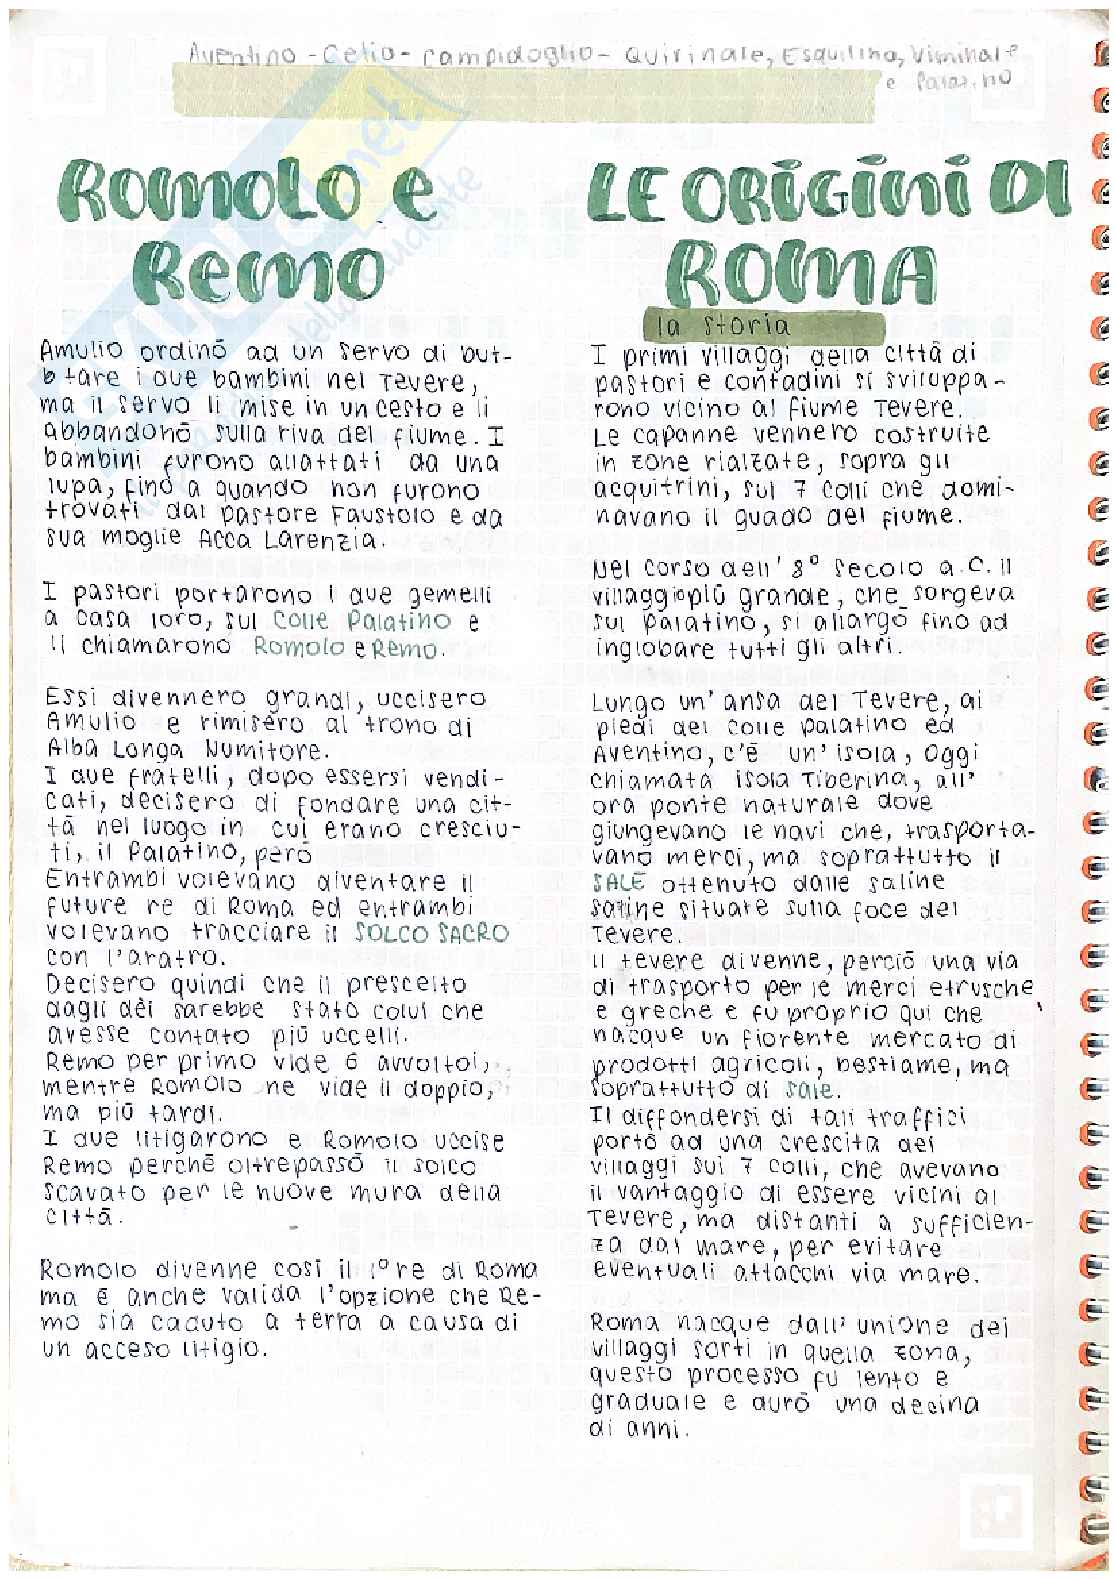 Aventino - Celio - Campidoglio - Quirinale, Esquilino, Viminale
e Palatino
Romolo e
Remo
Amulio ordinò ad un servo di but-
tare i due bambini nel Tevere,
ma il servo li mise in un cesto e li
abbandonò sulla riva del fiume. I
bambini furono allattati da una
lupa, fino a quando non furono
trovati dal pastore Faustolo e da
sua moglie Acca Larenzia.
I pastori portarono i due gemelli
a casa loro, sul Colle Palatino e
li chiamarono Romolo e Remo.
Essi divennero grandi, uccisero
Amulio e rimisero al trono di
Alba Longa Numitore.
I due fratelli, dopo essersi vendi-
cati, decisero di fondare una cit-
tà nel luogo in cui erano cresciu-
ti, il Palatino, però
Entrambi volevano diventare il
future re di Roma ed entrambi
volevano tracciare il SOLCO SACRO
con l'aratro.
Decisero quindi che il prescelto
dagli dèi sarebbe stato colui che
avesse contato più uccelli.
Remo per primo vide 6 avvoltoi,
mentre Romolo ne vide il doppio,
ma più tardi.
I due litigarono e Romolo uccise
Remo perchè oltrepassò il solco
scavato per le nuove mura della
città.
Romolo divenne così il 1° re di Roma
ma è anche valida l'opzione che Re-
mo sia caduto a terra a causa di
un acceso litigio.
LE ORIGINI DI
ROMA
la storia
I primi villaggi della città di
pastori e contadini si sviluppa-
rono vicino al fiume Tevere.
Le capanne vennero costruite
in zone rialzate, sopra gli
acquitrini, sui 7 colli che domi-
navano il guado del fiume.
Nel corso dell' 8° secolo a.C. il
villaggio più grande, che sorgeva
sul Palatino, si allargò fino ad
inglobare tutti gli altri.
Lungo un'ansa del Tevere, ai
piedi del colle Palatino ed
Aventino, c'è un'isola, oggi
chiamata isola Tiberina, all'
ora ponte naturale dove
giungevano le navi che, trasporta-
vano merci, ma soprattutto il
SALE ottenuto dalle saline
saline situate sulla foce del
Tevere.
Il tevere divenne, perciò una via
di trasporto per le merci etrusche
e greche e fu proprio qui che
nacque un fiorente mercato di
prodotti agricoli, bestiame, ma
soprattutto di sale.
Il diffondersi di tali traffici
portò ad una crescita dei
villaggi sui 7 colli, che avevano
il vantaggio di essere vicini al
Tevere, ma distanti a sufficien-
za dal mare, per evitare
eventuali attacchi via mare.
Roma nacque dall'unione dei
villaggi sorti in quella zona,
questo processo fu lento e
graduale e durò una decina
di anni.